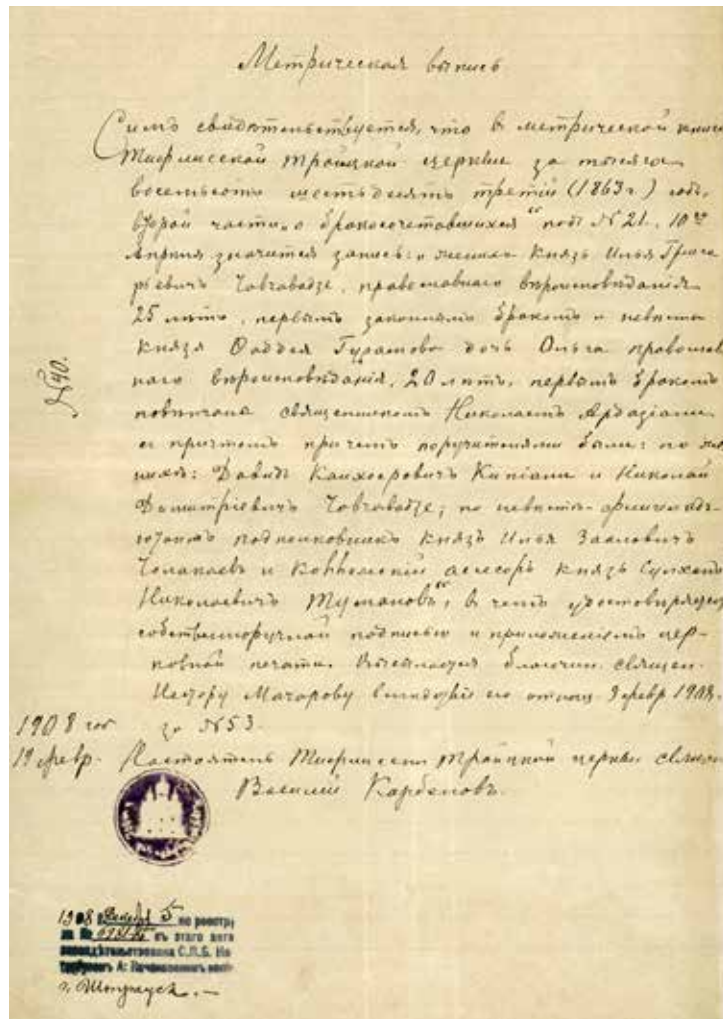 Метрическая выпись
Симъ свидѣтельствуется, что в метрической книгѣ
Тифлисской Троицкой церкви за тысяча
восемьсотъ шестьдесятъ третій (1863 г.) годъ,
второй части „о бракосочетавшихся“ подъ № 21. 10го
Апрѣля значится запись: о женихѣ Князь Илья Григо
рьевичъ Чавчавадзе, православнаго вѣроисповѣданія
25 лѣтъ, первымъ законнымъ бракомъ и невѣста
Князя Фаддея Гурамова дочь Ольга православ
наго вѣроисповѣданія, 20 лѣтъ, первымъ бракомъ
повѣнчаны священникомъ Николаемъ Ардазіани
съ причтомъ при чемъ поручителями были: по же
нихѣ: Давидъ Кайхосровичъ Кипіани и Николай
Димитріевичъ Чавчавадзе; по невѣстѣ
подполковникъ Князь Илья Зааловичъ
Челокаевъ и Коллежскій асесоръ Князь Сулханъ
Николаевичъ Тумановъ“, в чемъ удостовѣряю
собственноручной подписью и приложеніемъ цер-
ковной печати. Высылается благочин. священ.
Нестору Мачарову его отнош. 9 февр 1908 г.
за № 53.
№ 40.
1908 год
19 февр. Настоятель Тифлисской Троицкой церкви священ
Василий Карбеловъ.
1908 г. Декабря 5 по реестру
за № съ этого
засвидѣтельствована С.П.Б. Но